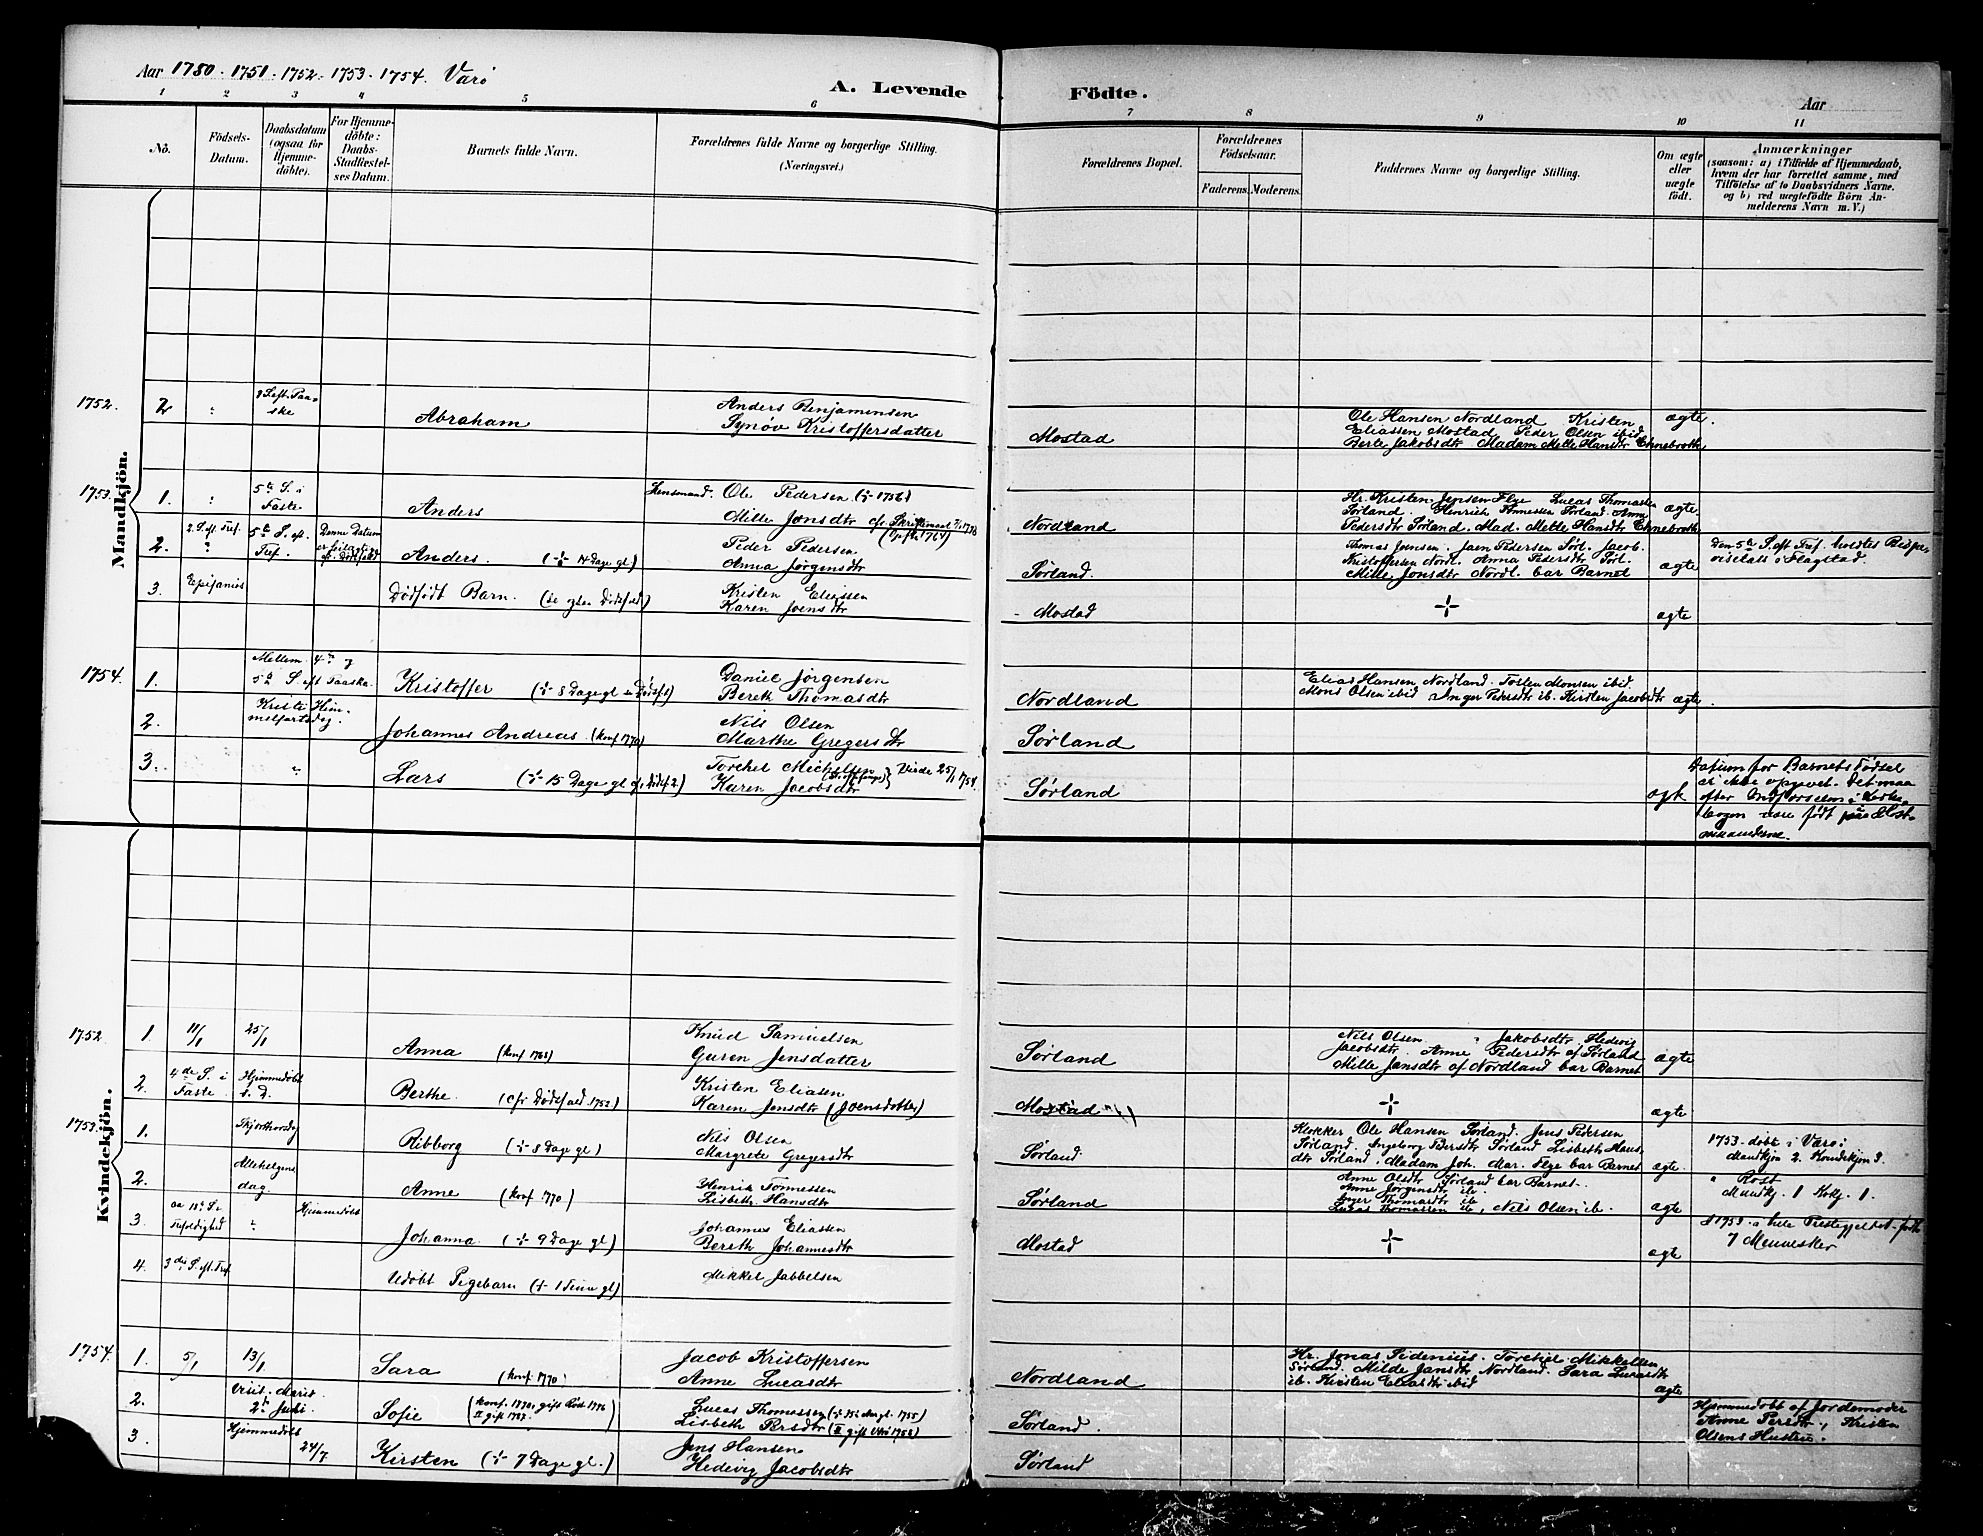 Aar 1750 - 1751 - 1752 - 1753 - 1754. Værö
A. Levende Födte.
Aar
1 2 3 4 5 6 7 8 9 10 11
Nö.
Födsels-
Datum.
Daabsdatum
(ogsaa for
Hjemme-
döbte).
For Hjemme-
döbte:
Daabs-
Stadfæstel-
ses Datum.
Barnets fulde Navn.
Forældrenes fulde Navne og borgerlige Stilling.
(Næringsvei.)
Forældrenes Bopæl.
Forældrenes
Födselsaar.
Faderens. Moderens.
Faddernes Navne og borgerlige Stilling.
Om ægte
eller
uægte
födt.
Anmærkninger
(saasom: a) i Tilfælde af Hjemmedaab,
hvem der har forrettet samme, med
Tilföielse af to Daabsvidners Navne.
og b) ved uægtefödte Börn An-
melderens Navn m. V.)
Mandkjön.
1752. 2 Abraham
Anders Benjaminsen
Synøv Kristoffersdatter
Mostad
Ole Hansen Nordland Kristen
Eliassen Mostad Peder Olsen ibid
Berte Jakobsdtr Madam Mette Hansdtr Ehnebrothe
ægte.
1753. 1. 5te S. i
Faste
Anders
Lensmand. Ole Pedersen (÷ 1756)
Mille Jonsdtr
Nordland
Hr. Kristen Jensen Flye Lucas Thomassen
Sørland. Henrich Tönnesen Sörland. Anne
Pedersdtr Sørland. Mad. Mette Hansdtr Ehnebrothe
ægte.
2. 2. S. eft Tref. 5te S. eft.
Tref.
Denne Datum
Anders. (÷ 14 Dage gl.)
Peder Pedersen
Anna Jørgensdtr
Sørland.
Thomas Joensen. Joen Pedersen Sörl. Jacob
Kristoffersen Nordl. Anna Pedersdtr Sörl.
Mille Jonsdtr Nordl. bar Barnet
ægte
Den 5te S. eft Tref. holdtes
i Flagstad.
3. Epifanias
Dødfødt Barn.
Kristen Eliassen
Karen Joensdtr
Mostad
÷
ægte
1754. 1. Mellem 4de og
5te S eft Paaske
Kristoffer (÷ 8 Dage gl
Daniel Jørgensen
Bereth Thomasdtr
Nordland
Elias Hansen Nordland. Tosten Monsen ibid.
Mons Olsen ibid. Inger Pedersdtr ib. Kirsten Jacobsdtr
ægte.
2. Kristi Him-
melfartsdag.
Johannes Andreas (konf 1770)
Nils Olsen
Marthe Gregersdtr
Sørland
3. " Lars (÷ 15 Dage gl
Torchel Michelsen
Karen Jacobsdtr
Virde 25/1 1754.
Sørland
ægte
Datum for Barnets Fødsel
er ikke opgivet. Det maa
efter Indførselen i Kirke-
bogen være født paa Høst-
maanederne.
Kvindekjön.
1752 1 11/1 25/1 Anna (konf 1768)
Knud Samuelsen
Guren Jensdatter
Sørland
Nils Olsen. " Jakobsdtr. Hedevig
Jacobsdtr. Anne Pedersdtr af Sørland
Mille Jonsdtr af Nordland bar Barnet
ægte
2. 4de S. i
Faste
Hjemmedöbt
s. D.
Berthe. (cfr Dødsfald 1752)
Kristen Eliasen
Karen Jonsdtr (Joensdatter)
Mostad
÷
ægte
1753. 1. Skjærthorsdag
Ribborg (÷ 8 Dage gl)
Nils Olsen
Margrete Gregersdtr
Sørland.
Klokker Ole Hansen Sørland. Jens Pedersen
Sørland. Ingeborg Persdtr Sørland Lisbeth Hans-
dtr Sørland. Madam Joh. Mar. Flye bar Barnet
ægte.
1753 - döbt i Værö:
Mandkjön 2. Kvindekjön 3.
2. Allehelgens
dag.
Anne (konf 1770)
Henrik Tönnessen
Lisbeth Hansdtr
Sørland
Anne Olsdtr Sørland bar Barnet.
Anne Jørgensdtr ib.
Inger Thomasdtr ib
Lucas Thomassen ib, Nils Olsen ib.
ægte
" Røst
Mandkj. 1 Kvkj. 1.
3. Trefoldighed
" Hjemmedöbt
Johanna. (÷ 9 Dage gl)
Johannes Eliassen
Bereth Johannesdtr
Mostad
÷
ægte
I 1753 i hele Præstegjeldet
7 Mennesker
4. 3die S. eft. Tref.
Udøbt Pigebarn (÷ 1 Time gl)
Mikkel Jabbelsen
1754. 1. 5/1 13/1 Sara (konf 1770)
Jacob Kristoffersen
Anne Lucasdtr
Nordland
Hr. Jonas Sidenius. Torchel Mikkelsen
Sørland. Milde Jonsdtr Nordland. Sara Lucasdtr
ib. Kirsten Eliasdtr ibid
ægte
2. Visit. Mariæ
2den Juli
Sofie (konf. 1770, gift Röst 1776
II gift 1787.)
Lucas Thomassen
Lisbeth Persdtr
Sørland.
3. Hjemmedöbt
24/7 Kirsten (÷ 7 Dage gl.)
Jens Hansen
Hedevig Jacobsdtr
Sørland
Hjemmedöbt af Jordemoder
Anne Persdtr, Kristen
Olsens Hustru.